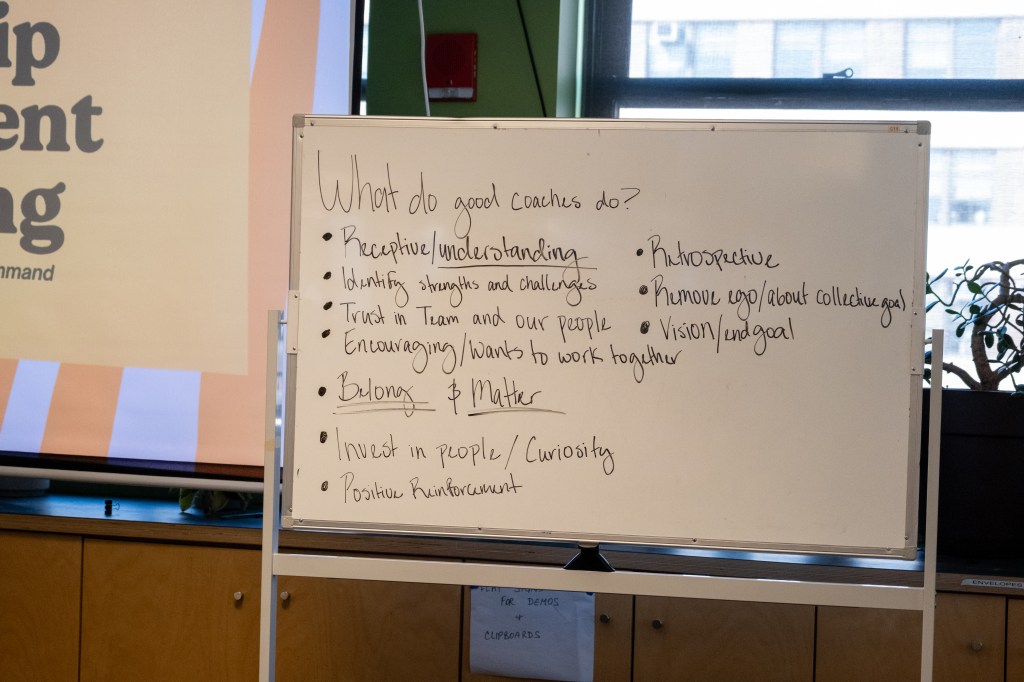 ip
ent
ng
mmand
What do good coaches do?
• Receptive/understanding
• Identify strengths and challenges
• Trust in Team and our people
• Encouraging/Wants to work together
• Belong & Matter
• Invest in people/Curiosity
• Positive Reinforcement
• Retrospective
• Remove ego/about collective goal
• Vision/endgoal
FOR DEMOS
+
CLIPBOARDS
ENVELOPES